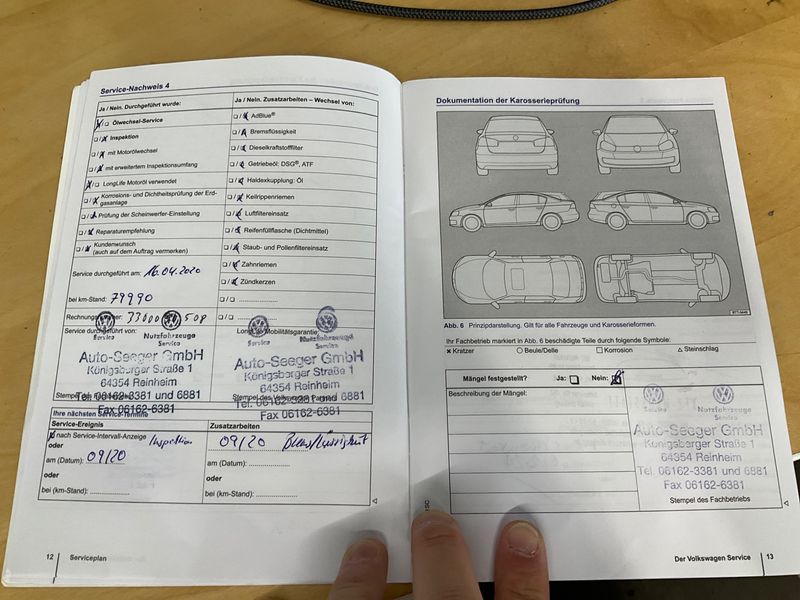 Service-Nachweis 4
Ja / Nein. Durchgeführt wurde:
Ölwechsel-Service
Inspektion
mit Motorölwechsel
mit erweitertem Inspektionsumfang
LongLife Motoröl verwendet
Korrosions- und Dichtheitsprüfung der Erd-
gasanlage
Prüfung der Scheinwerfer-Einstellung
Reparaturempfehlung
Kundenwunsch
(auch auf dem Auftrag vermerken)
Service durchgeführt am: 16.04.2020
bei km-Stand: 79990
Service durchgeführt von:
Service Nutzfahrzeuge
Service
Auto-Seeger GmbH
Königsberger Straße 1
64354 Reinheim
Tel. 06162-3381 und 6881
Fax 06162-6381
Ja / Nein. Zusatzarbeiten – Wechsel von:
AdBlue®
Bremsflüssigkeit
Dieselkraftstofffilter
Getriebeöl: DSG®, ATF
Haldexkupplung: Öl
Keilrippenriemen
Luftfiltereinsatz
Reifenfüllflasche (Dichtmittel)
Staub- und Pollenfiltereinsatz
Zahnriemen
Zündkerzen
Service Nutzfahrzeuge
Service
Auto-Seeger GmbH
Königsberger Straße 1
64354 Reinheim
Tel. 06162-3381 und 6881
Fax 06162-6381
Ihre nächsten Service-Termine
Service-Ereignis
nach Service-Intervall-Anzeige Inspektion
oder
am (Datum): 09/20
oder
bei (km-Stand):
Zusatzarbeiten
09/20 Bremsflüssigkeit
am (Datum):
oder
bei (km-Stand):
12 Serviceplan
Dokumentation der Karosserieprüfung
Abb. 6 Prinzipdarstellung. Gilt für alle Fahrzeuge und Karosserieformen.
Ihr Fachbetrieb markiert in Abb. 6 beschädigte Teile durch folgende Symbole:
Kratzer Beule/Delle Korrosion Steinschlag
Mängel festgestellt? Ja: Nein:
Beschreibung der Mängel:
Service Nutzfahrzeuge
Service
Auto-Seeger GmbH
Königsberger Straße 1
64354 Reinheim
Tel. 06162-3381 und 6881
Fax 06162-6381
Stempel des Fachbetriebs
Der Volkswagen Service 13